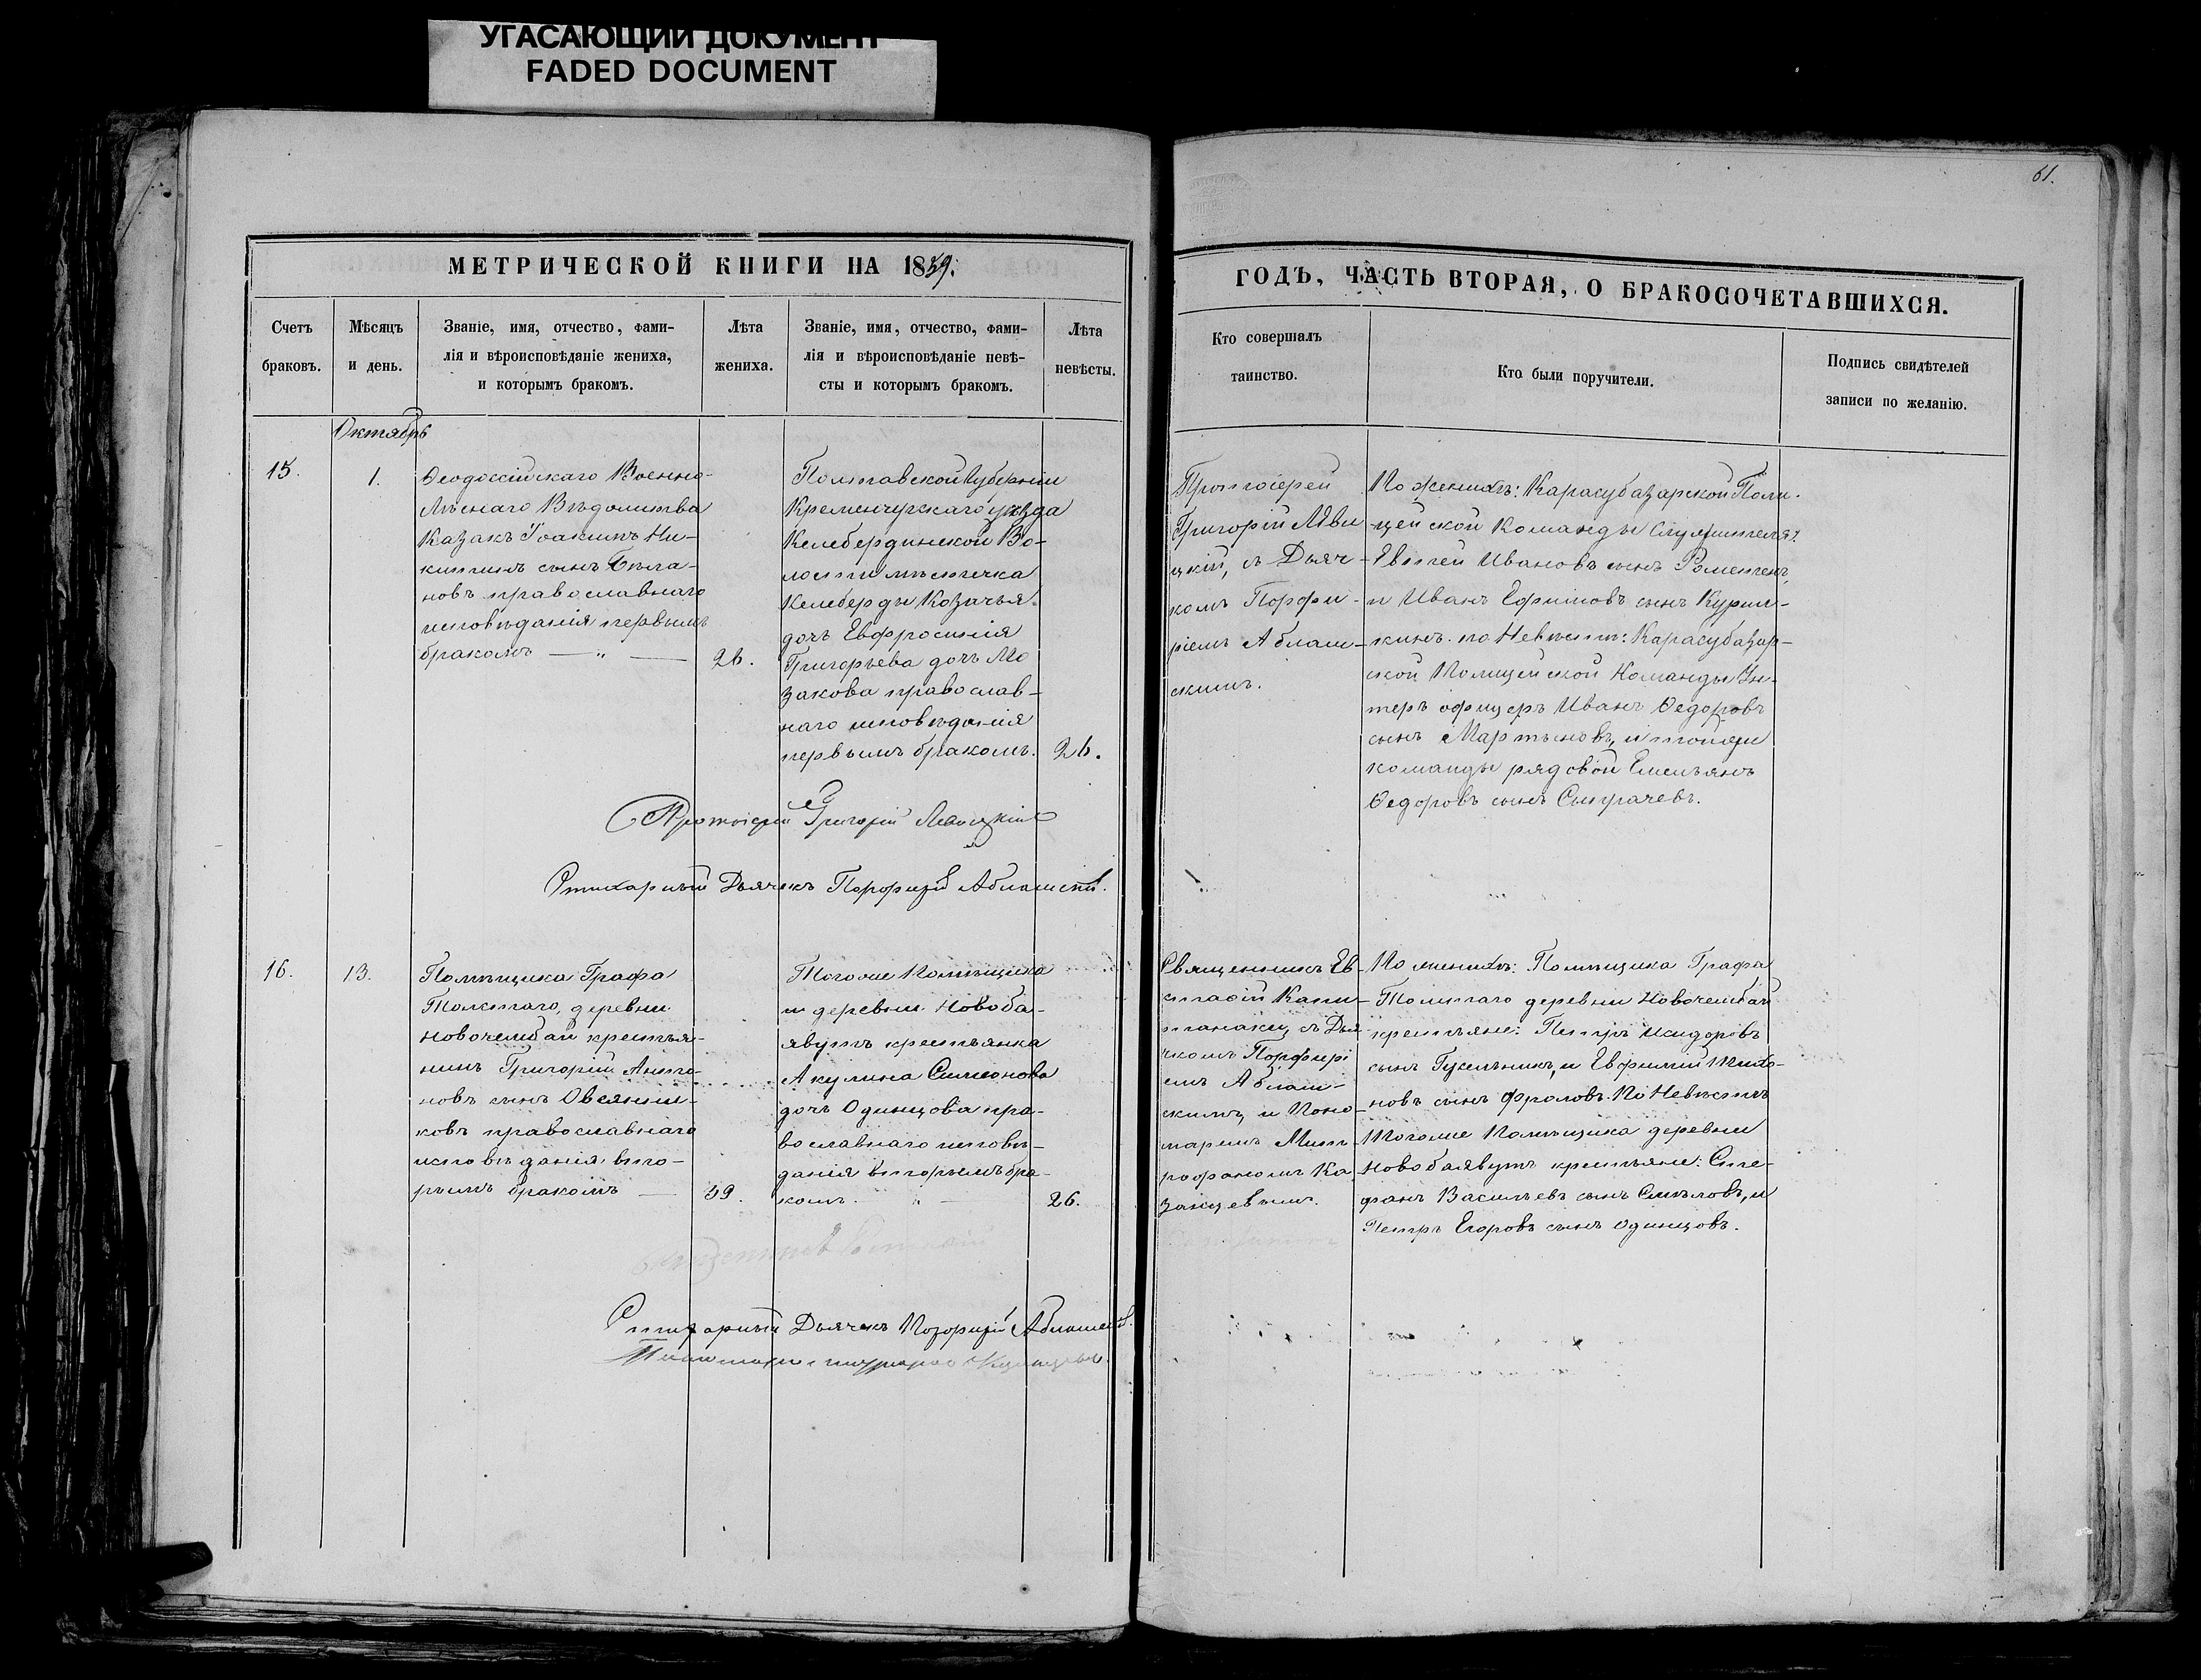 УГАСАЮЩИЙ ДОКУМЕНТ
FADED DOCUMENT
61.
МЕТРИЧЕСКОЙ КНИГИ НА 1859.
Счетъ
браковъ.
Мѣсяцъ
и день.
Званіе, имя, отчество, фами-
лія и вѣроисповѣданіе жениха,
и которымъ бракомъ.
Лѣта
жениха.
Званіе, имя, отчество, фами-
лія и вѣроисповѣданіе невѣ-
сты и которымъ бракомъ.
Лѣта
невѣсты.
ГОДЪ, ЧАСТЬ ВТОРАЯ, О БРАКОСОЧЕТАВШИХСЯ.
Кто совершалъ
таинство.
Кто были поручители.
Подпись свидѣтелей
записи по желанію.
Октябрь
15.
1.
Ѳеодосійскаго Военно-
Лѣснаго Вѣдомства
Казакъ Іоакимъ Ни-
китинъ сынъ Бѣла-
новъ православнаго
исповѣданія первымъ
бракомъ — „ —
26.
Полтавской Губерніи
Кременчугскаго уѣзда
Келебердинской Во-
лости мѣстечка
Келеберды Козачья
дочь Евфросинія
Григорьева дочь Мо
закова православ-
наго исповѣданія
первымъ бракомъ.
26.
Протоіерей
Григорій Леви
цкій, съ Дьяч-
комъ Порфи-
ріемъ Аблам-
скимъ.
По женихѣ: Карасубазарской Поли-
цейской Команды Служители:
Евтѣй Ивановъ сынъ
и Иванъ Ефимовъ сынъ Куриш-
кинъ. по Невѣстѣ: Карасубазар-
ской Полицейской Команды Ун-
теръ офицеръ Иванъ Ѳедоровъ
сынъ Мартыновъ, и тойже
команды рядовой Емельянъ
Ѳедоровъ сынъ
Протоіерей Григорій Левицкій
Стихарный Дьячекъ Порфирій Абламскій.
16.
13.
Помѣщика Графа
Толстаго, деревни
Новочембай крестья-
нинъ Григорій Анто-
новъ сынъ Овсянни-
ковъ православнаго
исповѣданія вто-
рымъ бракомъ —
39.
Тогоже Помѣщика
и деревни Новоба-
явутъ крестьянка
Акулина Симеонова
дочь Одинцова пра-
вославнаго исповѣ-
данія вторымъ бра-
комъ. „ —
26.
Священникъ Ев-
стафій Капи-
танаки съ Дья
чкомъ Порфирі
емъ Аблам-
скимъ, и Поно-
маремъ Мит-
рофаномъ Ка
занцевымъ.
По женихѣ: Помѣщика Графа
Толстаго деревни Новочембай
крестьяне: Петръ Исидоровъ
сынъ Гукельникъ, и Евфимій Тихо-
новъ сынъ Фроловъ. По Невѣстѣ
Тогоже Помѣщика деревни
Новобаявутъ крестьяне: Сте-
фанъ Васильевъ сынъ Смѣловъ, и
Петръ Егоровъ сынъ Одинцовъ.
Священникъ
Стихарный Дьячекъ Порфирій Абламскій.